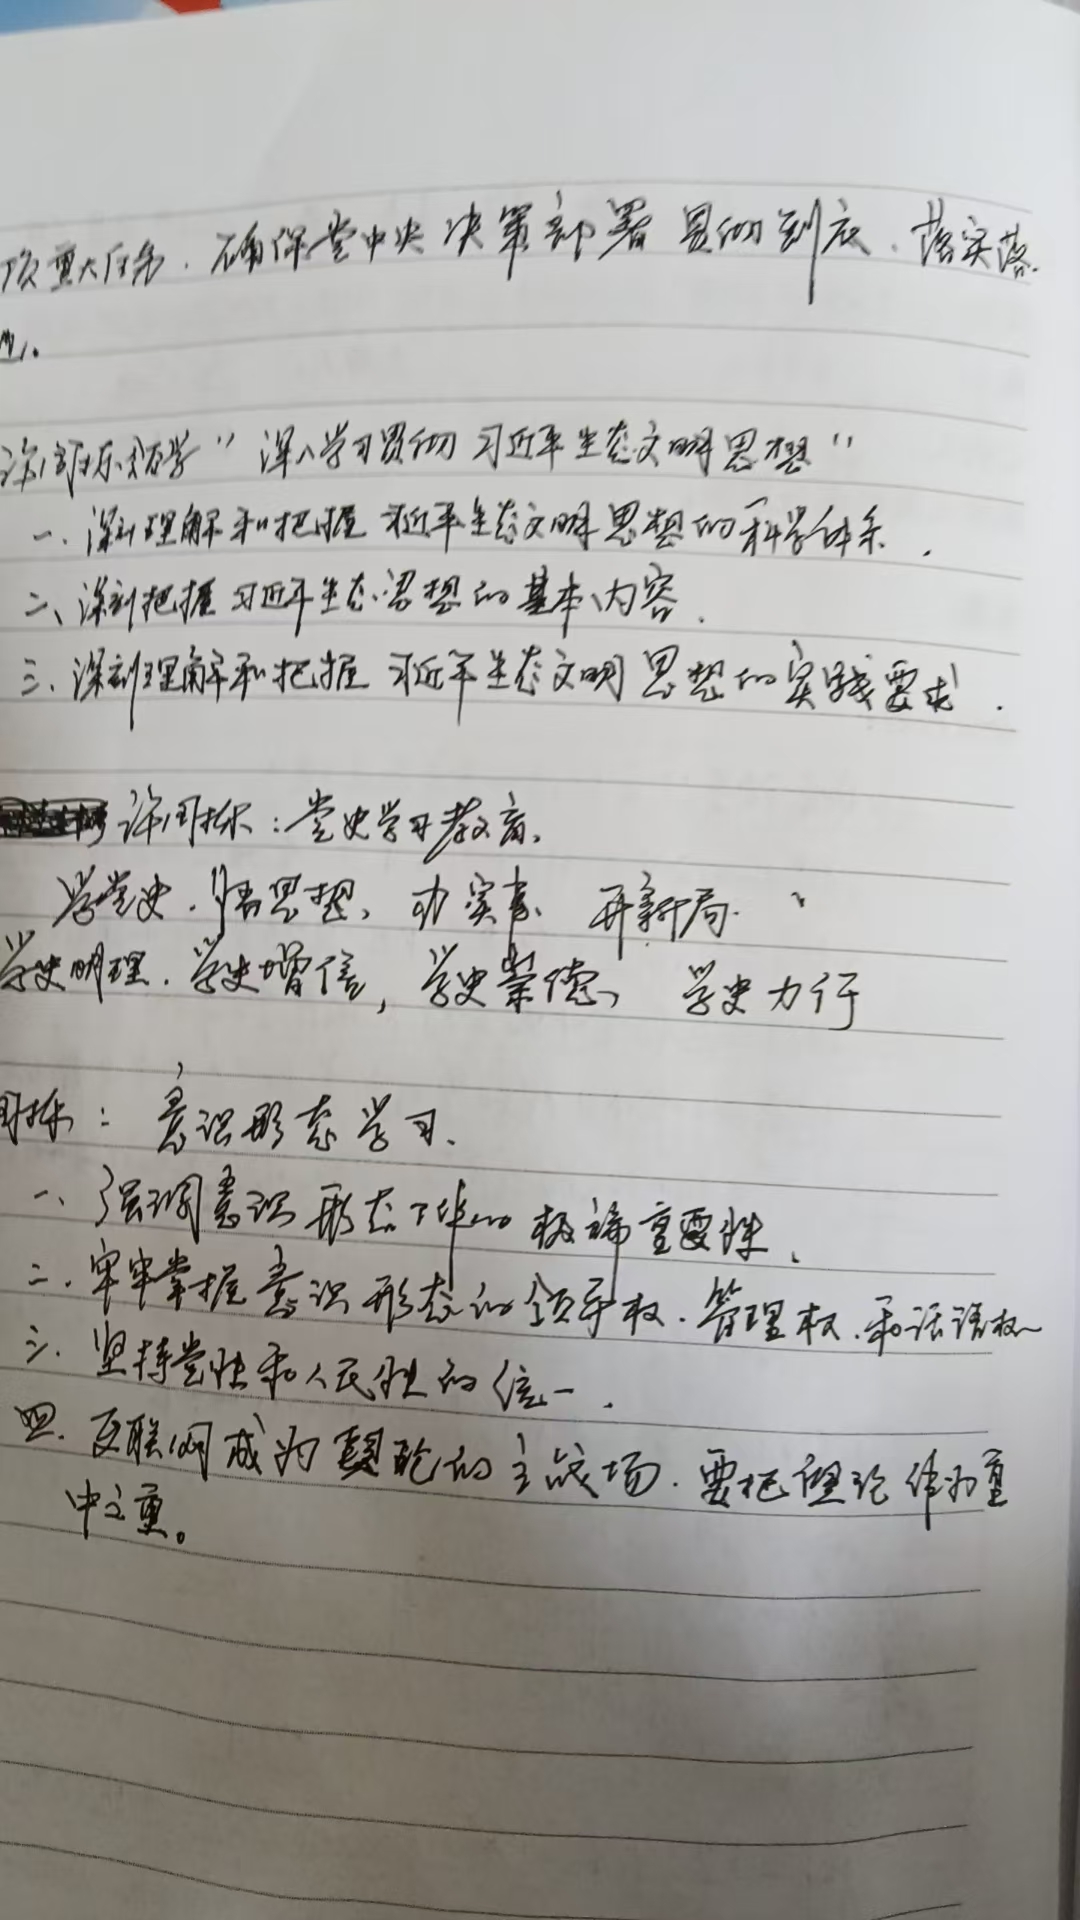 项重大任务、确保党中央决策部署贯彻到底、落实落
地。
领学"深入学习贯彻习近平生态文明思想"
一、深刻理解和把握习近平生态文明思想的科学体系.
二、深刻把握习近平生态思想的基本内容.
三、深刻理解和把握习近平生态文明思想的实践要求.
:党史学习教育、
学党史、悟思想、办实事、开新局.
学史明理、学史增信,学史崇德、学史力行
:意识形态学习.
一、强调意识形态工作的极端重要性、
二、牢牢掌握意识形态的领导权、管理权、和话语权
三、坚持党性和人民性的统一.
四、互联网成为舆论的主战场、要把舆论作为重
中之重。